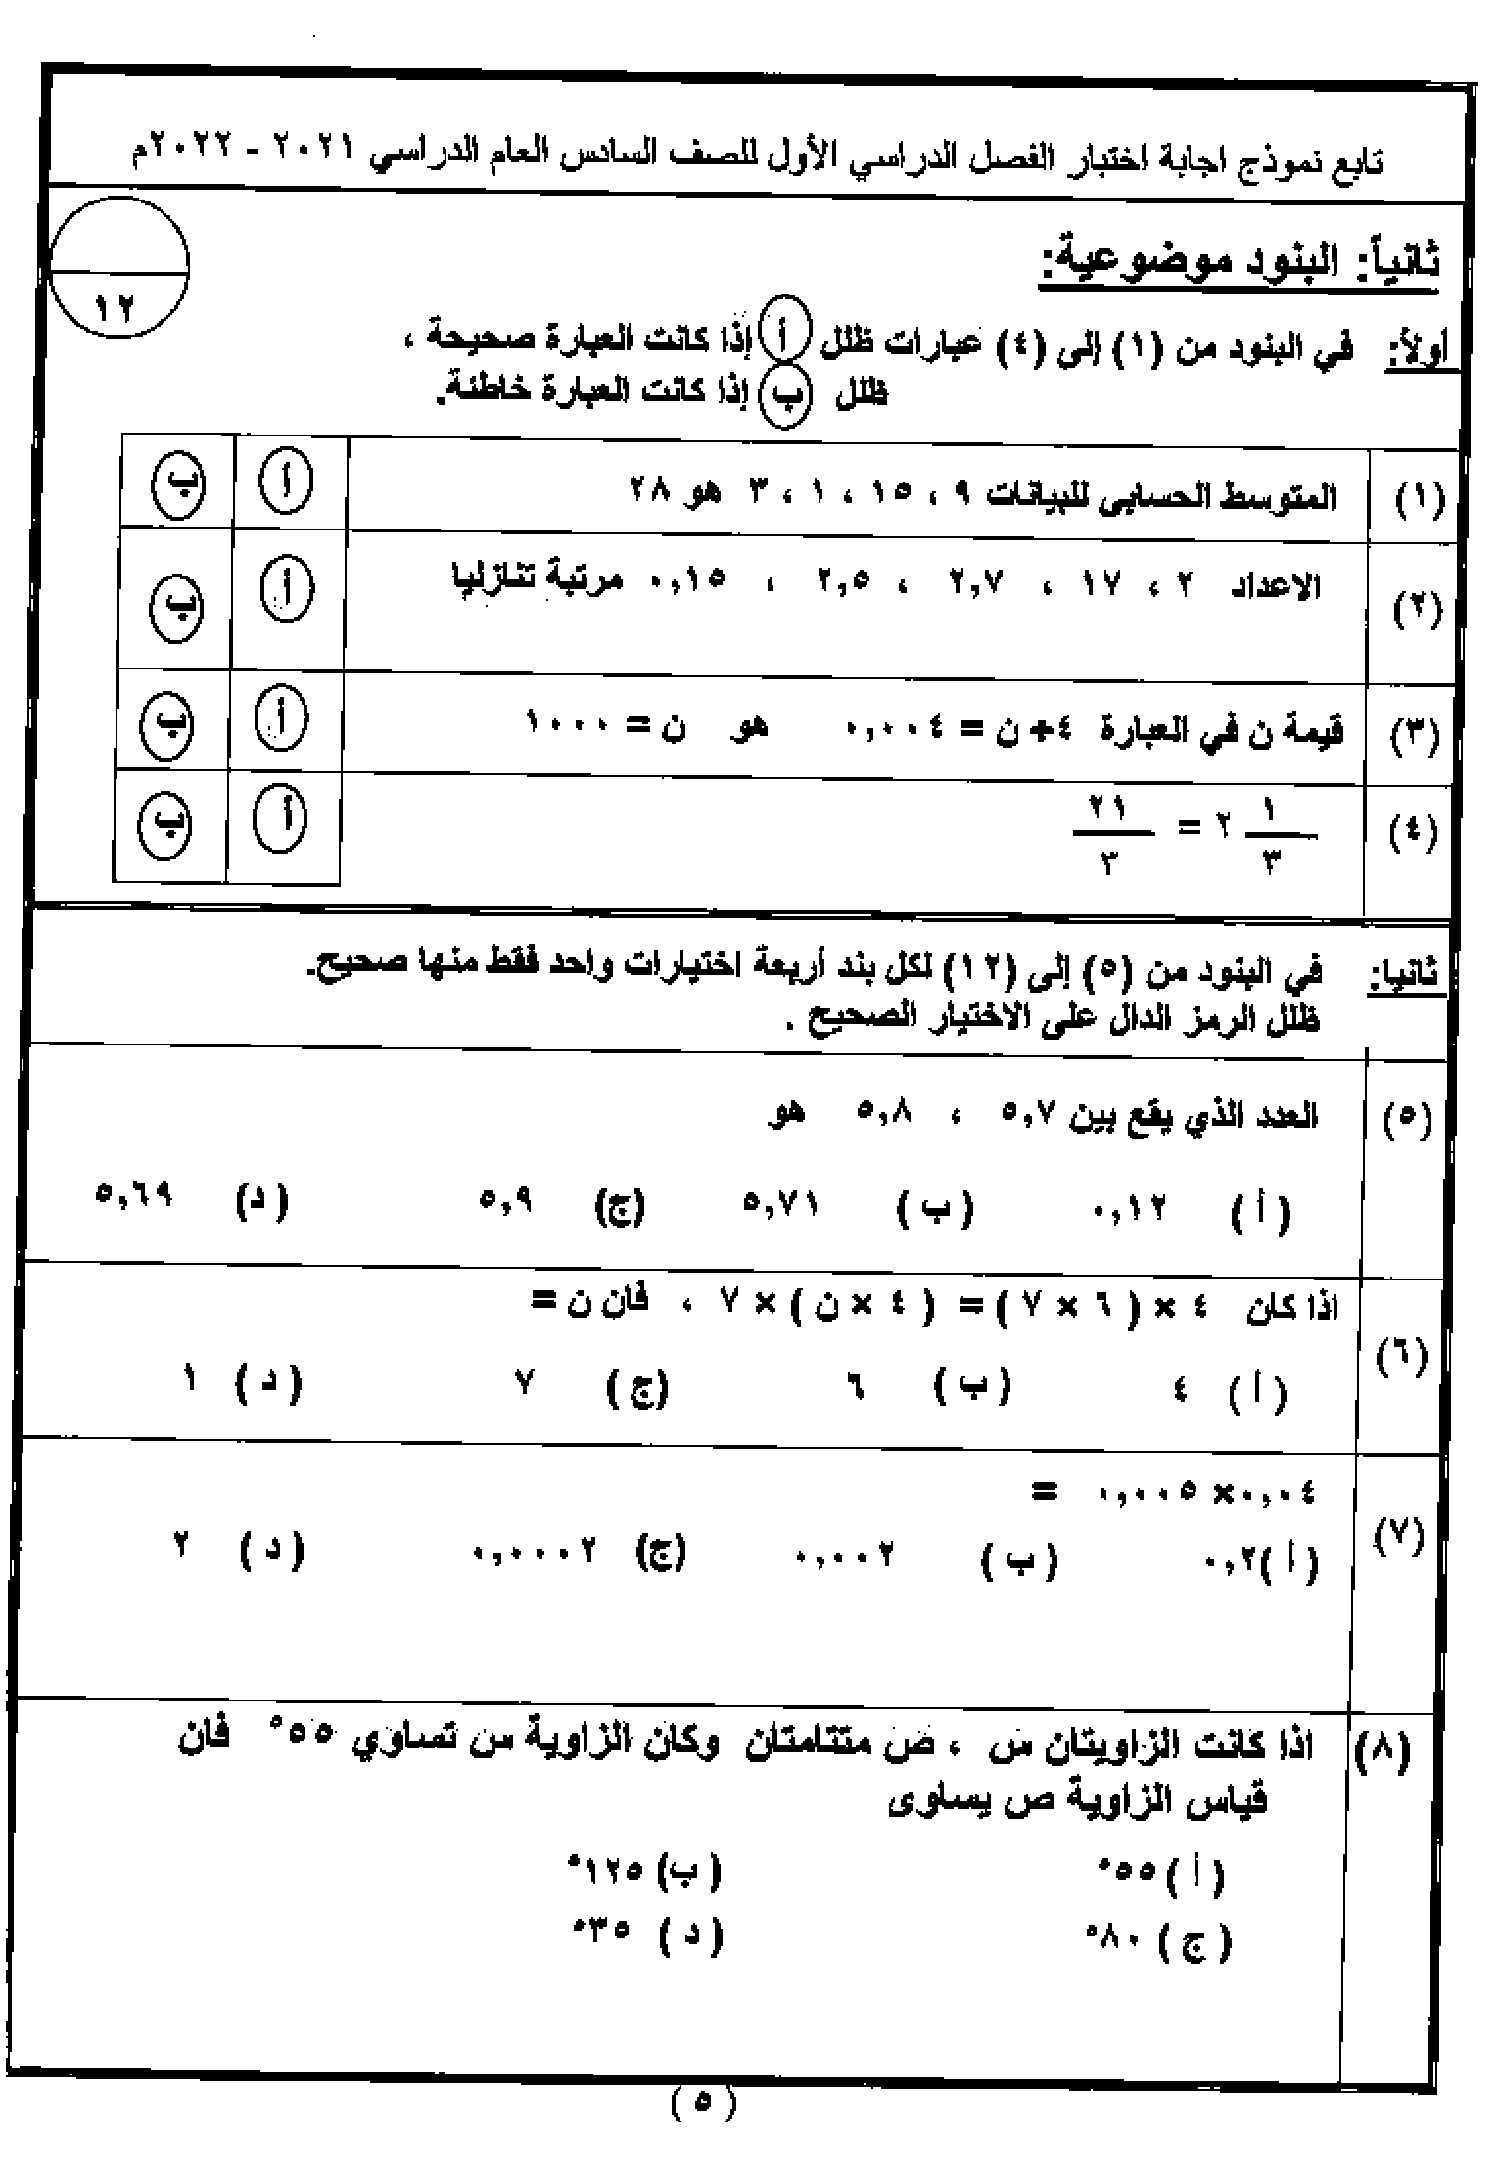 تابع نموذج اجابة اختبار الفصل الدراسي الأول للصف السادس العام الدراسي ٢٠٢١ - ٢٠٢٢م
ثانياً: البنود موضوعية:
١٢
أولاً: في البنود من (١) إلى (٤) عبارات ظلل أ إذا كانت العبارة صحيحة ،
ظلل ب إذا كانت العبارة خاطئة.
(١) المتوسط الحسابي للبيانات ٩ ، ١٥ ، ١ ، ٣ هو ٢٨ أ ب
(٢) الاعداد ٢ ، ١٧ ، ٢,٧ ، ٢,٥ ، ٠,١٥ مرتبة تنازليا أ ب
(٣) قيمة ن في العبارة ٤÷ ن = ٠,٠٠٤ هو ن = ١٠٠٠ أ ب
(٤) ١/٣ ٢ = ٢١/٣ أ ب
ثانيا: في البنود من (٥) إلى (١٢) لكل بند أربعة اختيارات واحد فقط منها صحيح.
ظلل الرمز الدال على الاختيار الصحيح .
(٥) العدد الذي يقع بين ٥,٧ ، ٥,٨ هو
( أ ) ٠,١٢ ( ب ) ٥,٧١ (ج) ٥,٩ ( د) ٥,٦٩
(٦) اذا كان ٤ × ( ٦ × ٧ ) = ( ٤ × ن ) × ٧ ، فان ن =
( أ ) ٤ ( ب ) ٦ (ج ) ٧ ( د ) ١
(٧) ٠,٠٤ × ٠,٠٠٥ =
( أ )٠,٢ ( ب ) ٠,٠٠٢ (ج) ٠,٠٠٠٢ ( د ) ٢
(٨) اذا كانت الزاويتان س ، ص متتامتان وكان الزاوية س تساوي ٥٥° فان
قياس الزاوية ص يساوى
( أ ) ٥٥° ( ب) ١٢٥°
( ج ) ٨٠° ( د ) ٣٥°
( ٥ )